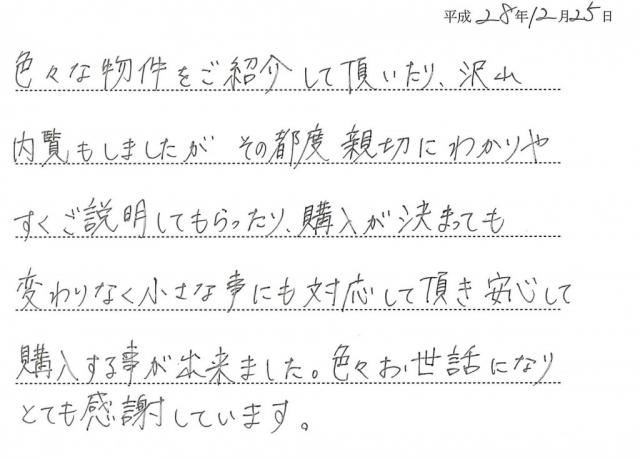 平成 28年12月25日
色々な物件をご紹介して頂いたり、沢山
内覧もしましたが その都度 親切に わかりや
すくご説明してもらったり、購入が決まっても
変わりなく小さな事にも対応して頂き安心して
購入する事が出来ました。色々お世話になり
とても感謝しています。